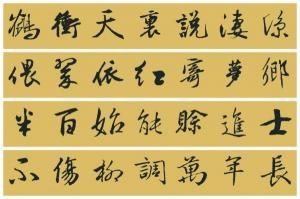 鶴衝天裏說淒涼
偎翠依紅寄夢鄉
半百始能賒進士
不傷柳調萬年長